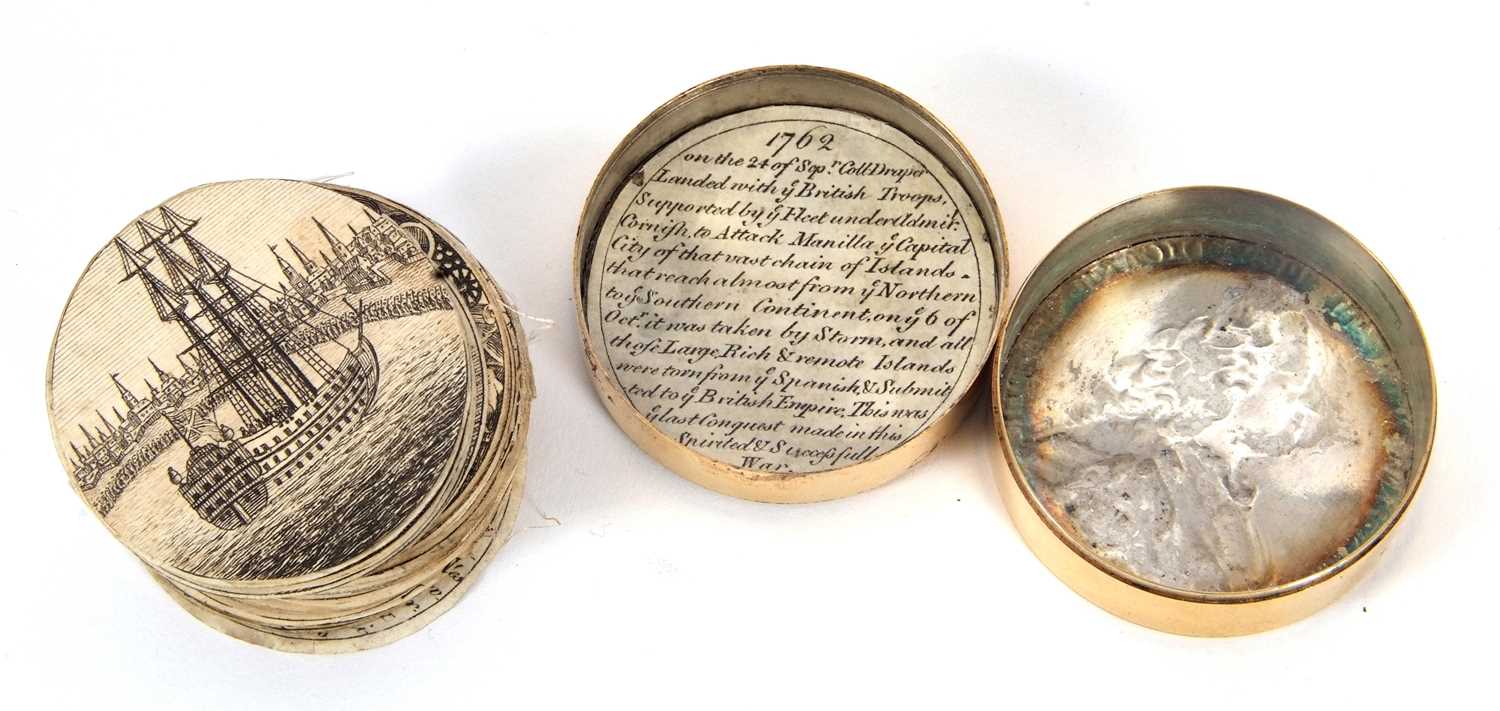 1762
on the 24 of Sepr. Coll Draper
Landed with ye British Troops,
Supported by ye Fleet under Admir.
Cornish, to Attack Manilla ye Capital
City of that vast chain of Islands
that reach almost from ye Northern
to ye Southern Continent, on ye 6 of
Octr. it was taken by Storm, and all
those Large, Rich & remote Islands
were torn from ye Spanish, & Submit
ted to ye British Empire, This was
ye last Conquest made in this
Spirited & Successfull
War.